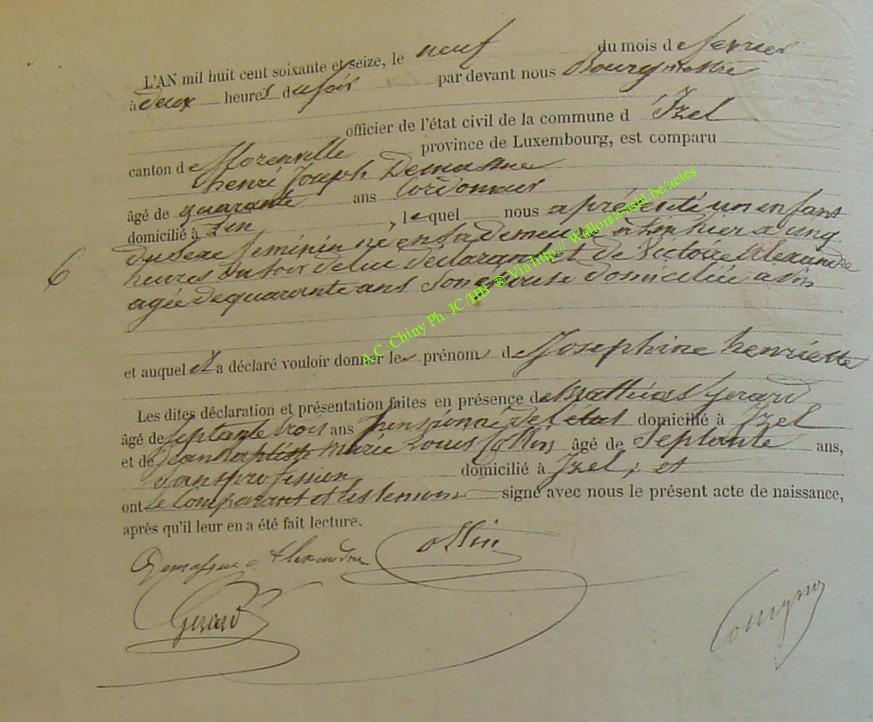 L'AN mil huit cent soixante et seize, le neuf du mois d e fevrier
à deux heures du soir par devant nous Bourgmestre
officier de l'état civil de la commune d 'Izel
canton d e florenville province de Luxembourg, est comparu
henri Joseph Demasse
âgé de quarante ans Cordonnier
domicilié à , lequel nous a présenté un enfant
du sexe feminin né en sa demeure hier a cinq
6
heures du soir de lui déclarant et de Victoire Alexandre
agée de quarante ans son épouse domiciliée a
et auquel il a déclaré vouloir donner les prénoms de Josephine henriette
Les dites déclaration et présentation faites en présence de Mathias Gerard
âgé de septante trois ans pensionné de l'état domicilié à Izel
et de Jean Baptiste Marie Louis Collin âgé de septante ans,
sans profession domicilié à Izel, et
ont le Comparant et les temoins signé avec nous le présent acte de naissance,
après qu'il leur en a été fait lecture.
Demasse Alexandre Collin
Gerard
A.C Chiny Ph. JC/HB ® Via http:// Wallonia-asbl.be/actes